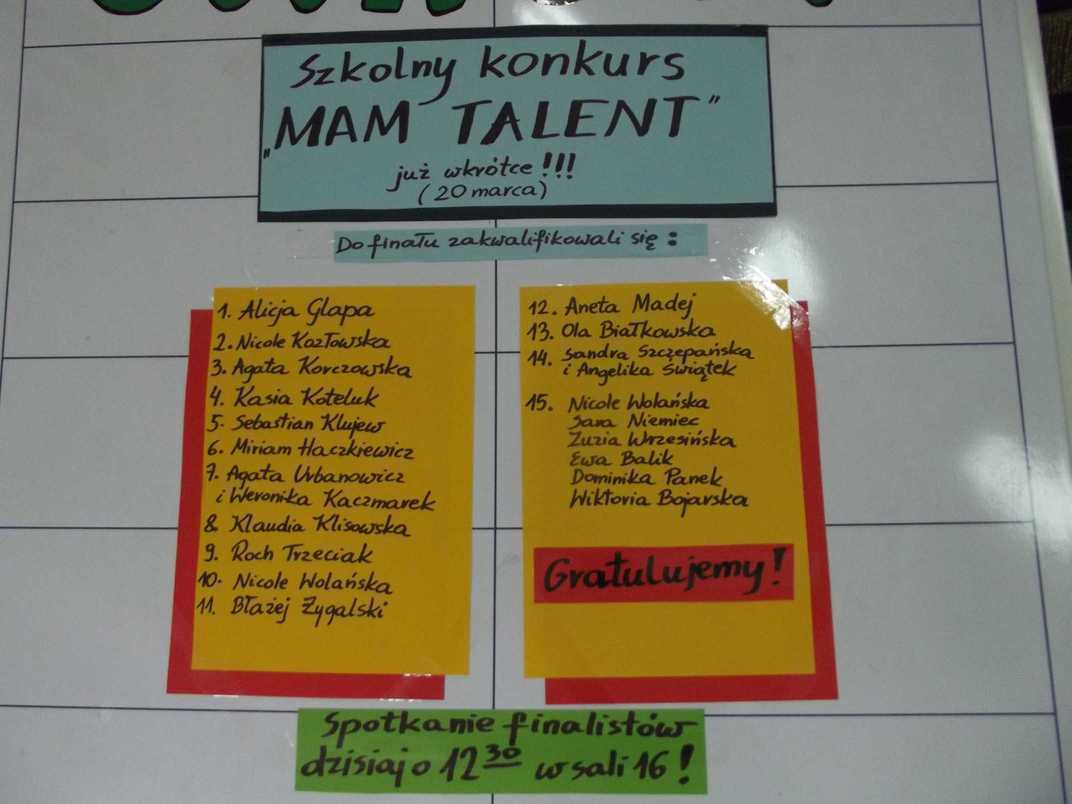 Szkolny konkurs
„MAM TALENT"
już wkrótce !!!
(20 marca)
Do finału zakwalifikowali się :
1. Alicja Glapa
2. Nicole Kozłowska
3. Agata Korczowska
4. Kasia Koteluk
5. Sebastian Klujew
6. Miriam Haczkiewicz
7. Agata Urbanowicz
i Weronika Kaczmarek
8. Klaudia Klisowska
9. Roch Trzeciak
10. Nicole Wolańska
11. Błażej Zygalski
12. Aneta Madej
13. Ola Białkowska
14. Sandra Szczepańska
i Angelika Świątek
15. Nicole Wolańska
Sara Niemiec
Zuzia Wrzesińska
Ewa Balik
Dominika Panek
Wiktoria Bojarska
Gratulujemy!
Spotkanie finalistów
dzisiaj o 12 30 w sali 16 !